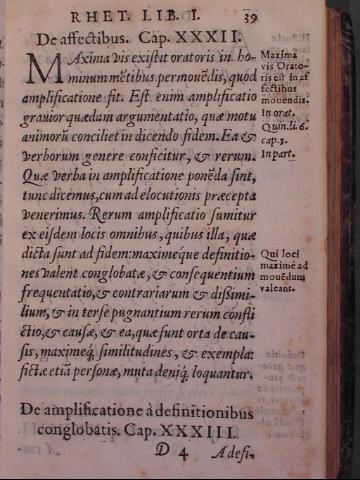 RHET. LIB. I. 39
De affectibus. Cap. XXXII.
MAxima vis existit oratoris in ho-
minum mẽtibus permouẽdis, quod
amplificatione fit. Est enim amplificatio
grauior quædam argumentatio, quæ motu
animorũ conciliet in dicendo fidem. Ea &
verborum genere conficitur, & rerum.
Quæ verba in amplificatione ponẽda sint,
tunc dicemus, cum ad elocutionis præcepta
venerimus. Rerum amplificatio sumitur
ex eisdem locis omnibus, quibus illa, quæ
dicta sunt ad fidem: maximeque definitio-
nes valent conglobatæ, & consequentium
frequentatio, & contrariarum & dissimi-
lium, & in terse pugnantium rerum confli
ctio, & causæ, & ea, quæ sunt orta de cau-
sis, maximeq́; similitudines, & exempla:
fictæ etiã personæ, muta deniq́; loquantur.
Maxima
vis Orato-
ris est in af
fectibus
mouendis.
In orat.
Quin. li. 6.
cap. 3.
In part.
Qui loci
maximè ad
mouẽdum
valeant.
De amplificatione à definitionibus
conglobatis. Cap. XXXIII.
D 4 A defi-